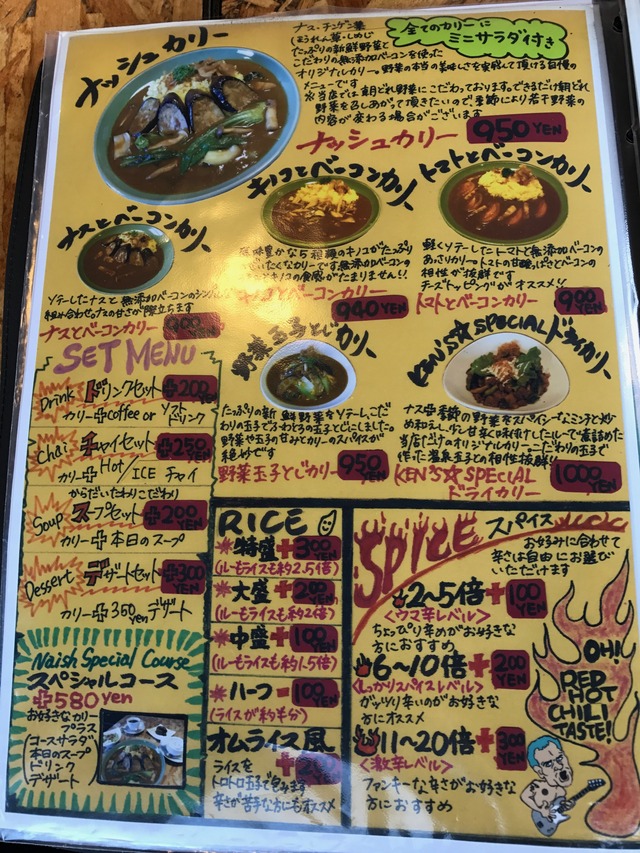 ナッシュカリー
ナス・チンゲン菜
ほうれん草・しめじ
たっぷりの新鮮野菜と
こだわりの無添加ベーコンを使った
オリジナルカリー。野菜の本当の美味しさを実感して頂ける自慢の
メニューです
※当店では朝どれ野菜にこだわっております。できるだけ朝どれ
野菜を召しあがって頂きたいので、季節により若干野菜の
内容が変わる場合がございます
全てのカリーに
ミニサラダ付き
ナッシュカリー 950 YEN
ナスとベーコンカリー
ソテーしたナスと無添加ベーコンのシンプルな
組み合わせ。ナスの甘さが際立ちます
ナスとベーコンカリー 900 YEN
キノコとベーコンカリー
風味豊かな5種類のキノコがたっぷり
カリーです。無添加ベーコン
キノコの食感がたまりません!!
キノコとベーコンカリー 940 YEN
トマトとベーコンカリー
軽くソテーしたトマトと無添加ベーコンの
あっさりカリー。トマトの甘酸っぱさとベーコンの
相性が抜群です
チーズトッピングがオススメ!!
トマトとベーコンカリー 900 YEN
野菜玉子とじカリー
たっぷりの新鮮野菜をソテーしこだ
わりの玉子でふわとろの玉子とじにしました。
野菜や玉子の甘みとカリーのスパイスが
絶妙です
野菜玉子とじカリー 950 YEN
KEN'S☆SPECIALドライカリー
ナス+季節の野菜をスパイシーなミンチと炒
め和えし、少し甘辛く味付けしたルーで煮詰めた
当店だけのオリジナルカリー。こだわりの玉子で
作った温泉玉子との相性抜群!!
KEN'S☆SPECIAL
ドライカリー 1000 YEN
SET MENU
Drink ドリンクセット +200 YEN
カリー+coffee or ソフトドリンク
Chai チャイセット +250 YEN
カリー+Hot/ICE チャイ
からだいたわりこだわり
Soup スープセット +200 YEN
カリー+本日のスープ
Dessert デザートセット +300 YEN
カリー+350yenデザート
Naish Special Course
スペシャルコース
+580yen
お好きなカリー
プラス
コースサラダ
本日のスープ
ドリンク
デザート
RICE
特盛+300 YEN
(ルーもライスも約2.5倍)
大盛+200 YEN
(ルーもライスも約2倍)
中盛+100 YEN
(ルーもライスも約1.5倍)
ハーフ-100 YEN
(ライスが約半分)
オムライス風
ライスを
トロトロ玉子で包みます
辛さが苦手な方にもオススメ
SPICE スパイス
お好みに合わせて
辛さは自由にお選び
いただけます
2~5倍+100 YEN
<ウマ辛レベル>
ちょっぴり辛めがお好きな
方におすすめ
6~10倍+200 YEN
<しっかりスパイスレベル>
ガッツリ辛いのがお好きな
方にオススメ
11~20倍+300 YEN
<激辛レベル>
ファンキーな辛さがお好きな
方におすすめ
OH!
RED
HOT
CHILI
TASTE!